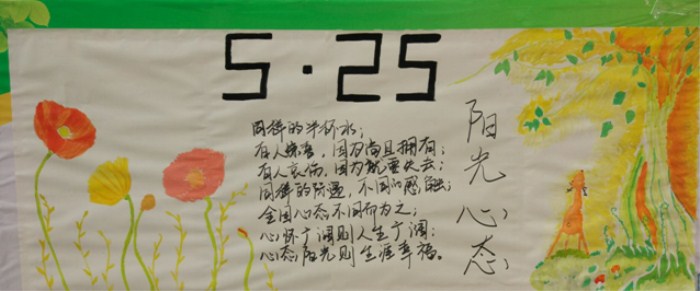 5·25
同样的半杯水;
有人,因为尚且拥有;
有人哀伤,因为就要失去;
同样的际遇,不同的感触;
全因心态不同而为之;
心怀广阔则人生广阔;
心态阳光则生涯幸福。
阳光心态